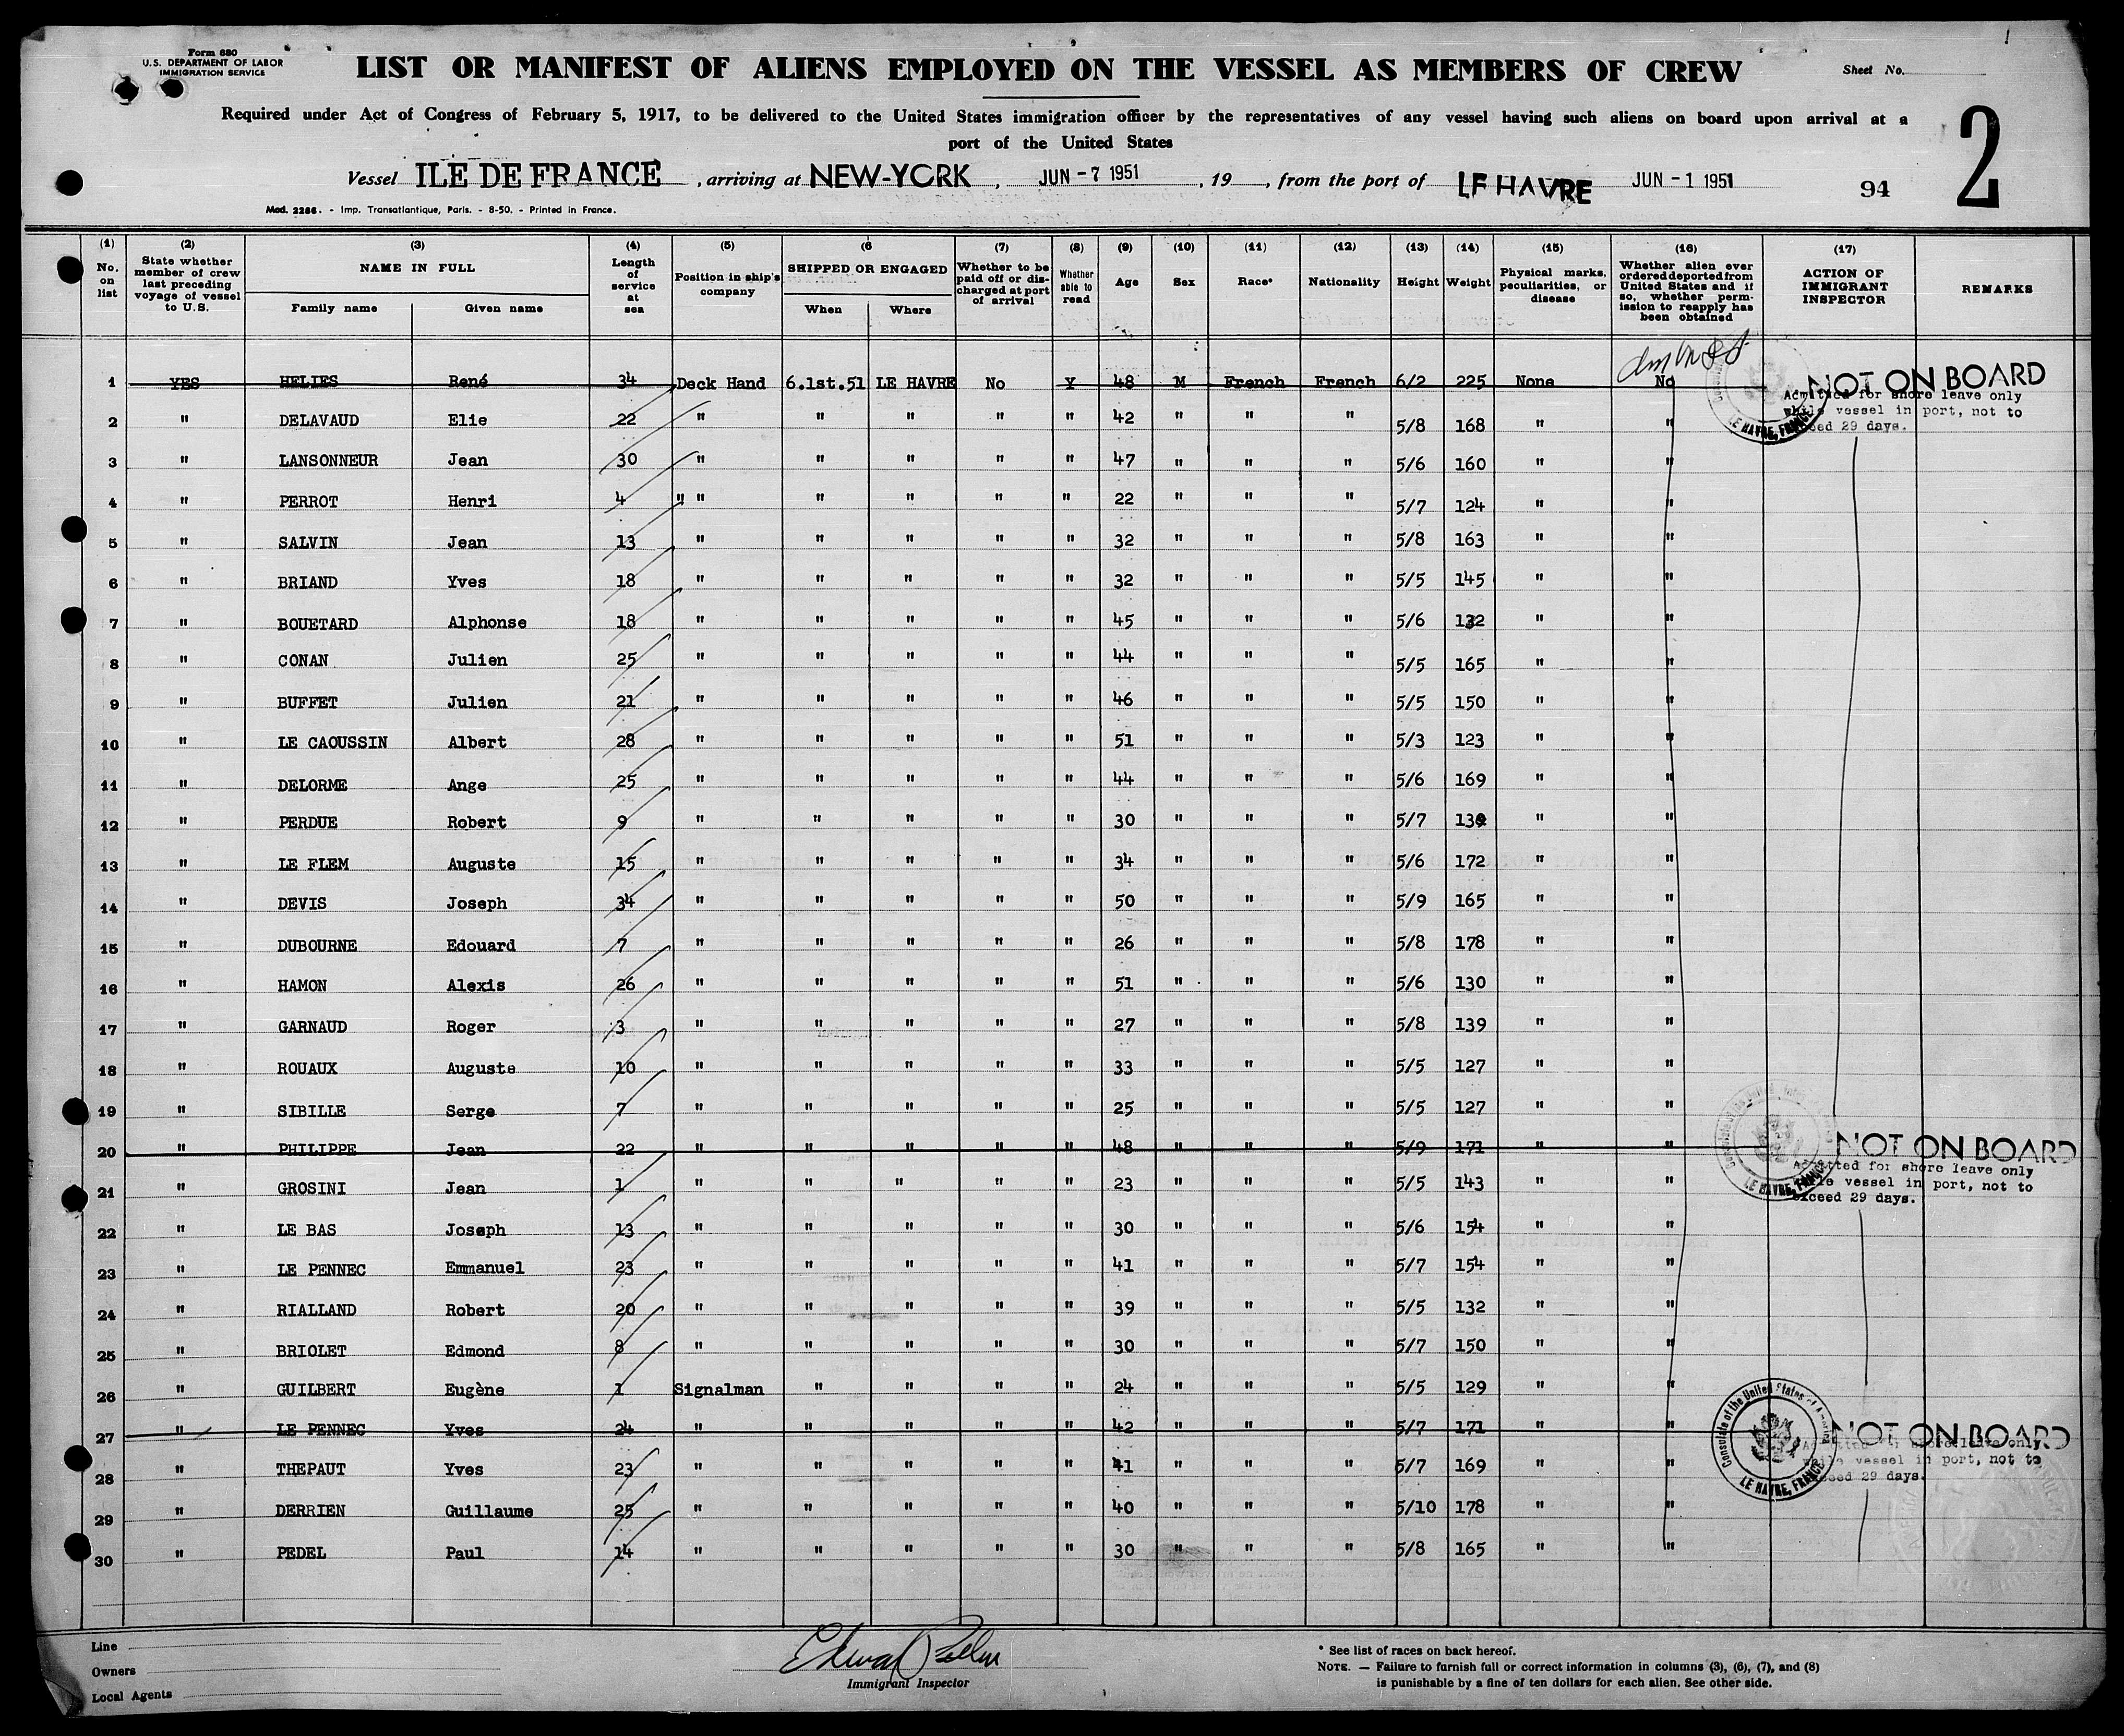 Form 680
U.S. DEPARTMENT OF LABOR
IMMIGRATION SERVICE
LIST OR MANIFEST OF ALIENS EMPLOYED ON THE VESSEL AS MEMBERS OF CREW
Sheet No.
Required under Act of Congress of February 5, 1917, to be delivered to the United States immigration officer by the representatives of any vessel having such aliens on board upon arrival at a
port of the United States
2
Vessel ILE DE FRANCE, arriving at NEW-YORK, JUN - 7 1951, 19, from the port of LE HAVRE JUN - 1 1951 94
Mod. 2286. - Imp. Transatlantique, Paris. - 8-50. - Printed in France.
(1) (2) (3) (4) (5) (6 (7) (8) (9) (10) (11) (12) (13) (14) (15) (16) (17)
No. on list
State whether member of crew last preceding voyage of vessel to U.S.
NAME IN FULL
Family name Given name
Length of service at sea
Position in ship's company
SHIPPED OR ENGAGED
When Where
Whether to be paid off or discharged at port of arrival
Whether able to read
Age
Sex
Race*
Nationality
Height
Weight
Physical marks, peculiarities, or disease
Whether alien ever ordered deported from United States and if so, whether permission to reapply has been obtained
ACTION OF IMMIGRANT INSPECTOR
REMARKS
1 YES HELIES René 34 Deck Hand 6.1st.51 LE HAVRE No Y 48 M French French 6/2 225 None No NOT ON BOARD
Admitted for shore leave only
while vessel in port, not to
exceed 29 days.
LE HAVRE, FRANCE
2 " DELAVAUD Elie 22 " " " " " 42 " " " 5/8 168 " "
3 " LANSONNEUR Jean 30 " " " " " 47 " " " 5/6 160 " "
4 " PERROT Henri 4 " " " " " " 22 " " " 5/7 124 " "
5 " SALVIN Jean 13 " " " " " 32 " " " 5/8 163 " "
6 " BRIAND Yves 18 " " " " " 32 " " " 5/5 145 " "
7 " BOUETARD Alphonse 18 " " " " " 45 " " " 5/6 132 " "
8 " CONAN Julien 25 " " " " " 44 " " " 5/5 165 " "
9 " BUFFET Julien 21 " " " " " 46 " " " 5/5 150 " "
10 " LE CAOUSSIN Albert 28 " " " " " 51 " " " 5/3 123 " "
11 " DELORME Ange 25 " " " " " 44 " " " 5/6 169 " "
12 " PERDUE Robert 9 " " " " " 30 " " " 5/7 " "
13 " LE FLEM Auguste 15 " " " " " 34 " " " 5/6 172 " "
14 " DEVIS Joseph 34 " " " " " 50 " " " 5/9 165 " "
15 " DUBOURNE Edouard 7 " " " " " 26 " " " 5/8 178 " "
16 " HAMON Alexis 26 " " " " " 51 " " " 5/6 130 " "
17 " GARNAUD Roger 3 " " " " " 27 " " " 5/8 139 " "
18 " ROUAUX Auguste 10 " " " " " 33 " " " 5/5 127 " "
19 " SIBILLE Serge 7 " " " " " 25 " " " 5/5 127 " "
20 " PHILIPPE Jean 22 " " " " " 48 " " " 5/9 171 " " NOT ON BOARD
Admitted for shore leave only
while vessel in port, not to
exceed 29 days.
LE HAVRE, FRANCE
21 " GROSINI Jean 1 " " " " " 23 " " " 5/5 143 " "
22 " LE BAS Joseph 13 " " " " " 30 " " " 5/6 154 " "
23 " LE PENNEC Emmanuel 23 " " " " " 41 " " " 5/7 154 " "
24 " RIALLAND Robert 20 " " " " " 39 " " " 5/5 132 " "
25 " BRIOLET Edmond 8 " " " " " 30 " " " 5/7 150 " "
26 " GUILBERT Eugène 1 Signalman " " " " 24 " " " 5/5 129 " "
27 " LE PENNEC Yves 24 " " " " " 42 " " " 5/7 171 " " NOT ON BOARD
Admitted for shore leave only
while vessel in port, not to
exceed 29 days.
Consulate of the United States of America
LE HAVRE, FRANCE
28 " THEPAUT Yves 23 " " " " " 41 " " " 5/7 169 " "
29 " DERRIEN Guillaume 25 " " " " " 40 " " " 5/10 178 " "
30 " PEDEL Paul 14 " " " " " 30 " " " 5/8 165 " "
Line
Owners
Local Agents
Immigrant Inspector
* See list of races on back hereof.
NOTE. — Failure to furnish full or correct information in columns (3), (6), (7), and (8)
is punishable by a fine of ten dollars for each alien. See other side.